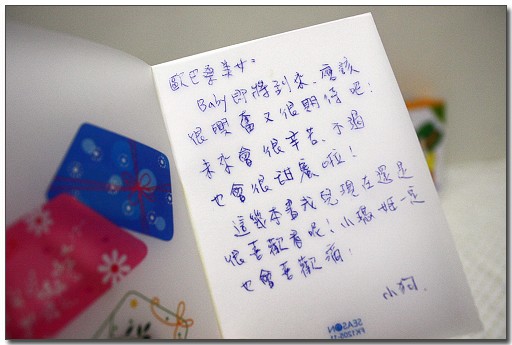 歐巴桑美女：
Baby即將到來，應該
很興奮又很期待吧！
未來會很辛苦，不過
也會很甜蜜啦！
這幾本書我兒現在還是
很喜歡看呢！小 一定
也會喜歡滴！
小狗.
SEASON
FK1205-11